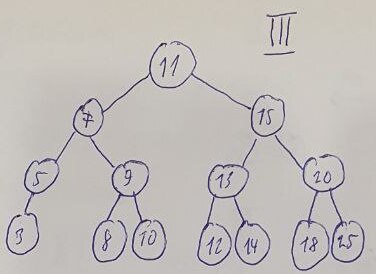 III
11
7 15
5 9 13 20
3 8 10 12 14 18 25